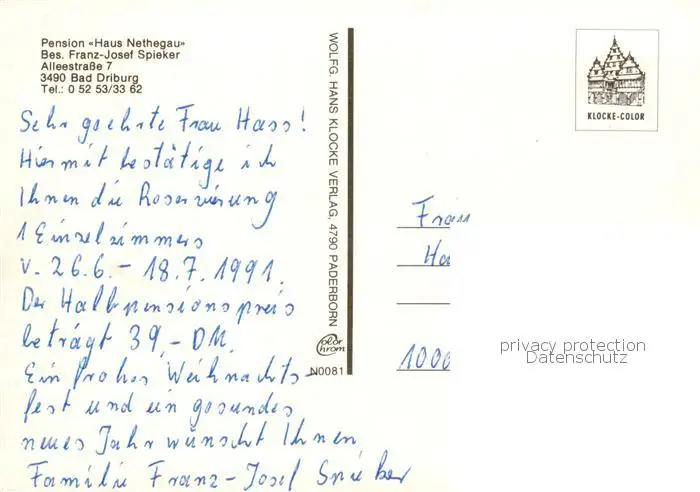 Pension «Haus Nethegau»
Bes. Franz-Josef Spieker
Alleestraße 7
3490 Bad Driburg
Tel.: 0 52 53/33 62
Sehr geehrte Frau Hass!
Hiermit bestätige ich
Ihnen die Reservierung
1 Einzelzimmers
v. 26.6. - 18.7. 1991.
Der Halbpensionspreis
beträgt 39,- DM.
Ein frohes Weihnachts-
fest und ein gesundes
neues Jahr wünscht Ihnen
Familie Franz-Josef Spieker
WOLFG. HANS KLOCKE VERLAG, 4790 PADERBORN
color chrom
N0081
KLOCKE-COLOR
Frau
Ha
1000
privacy protection
Datenschutz